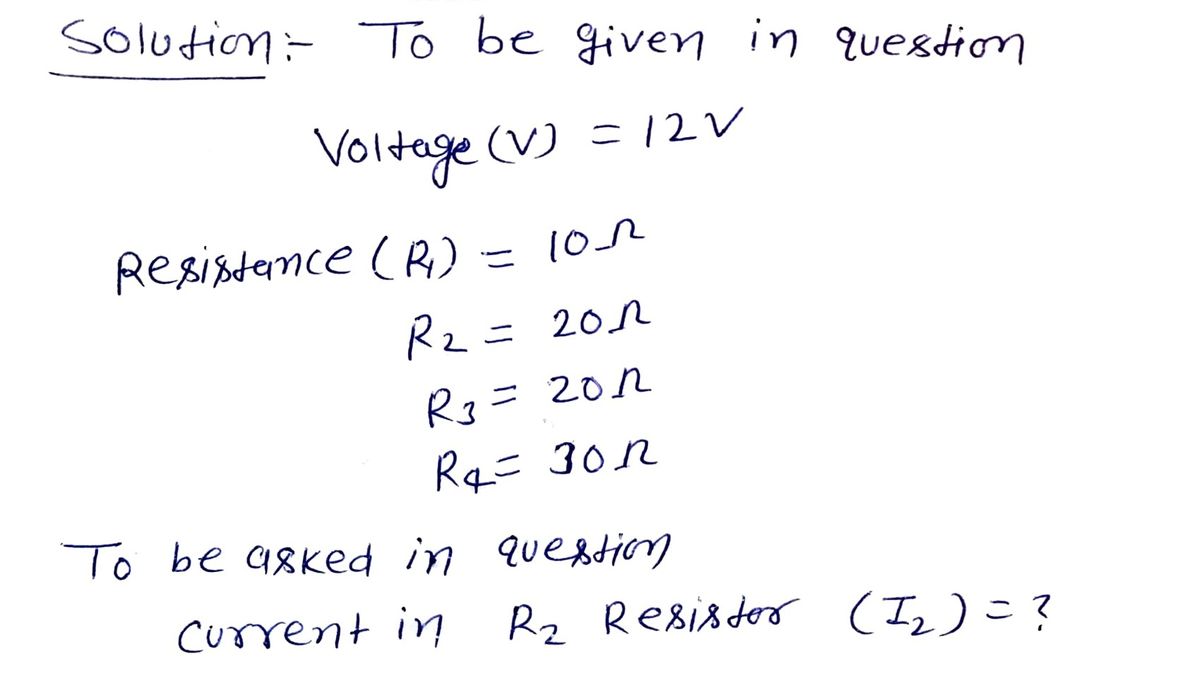 Solution:- To be given in question
Voltage (V) = 12V
Resistance (R1) = 10Ω
R2 = 20Ω
R3 = 20Ω
R4 = 30Ω
To be asked in question
current in R2 Resistor (I2) = ?